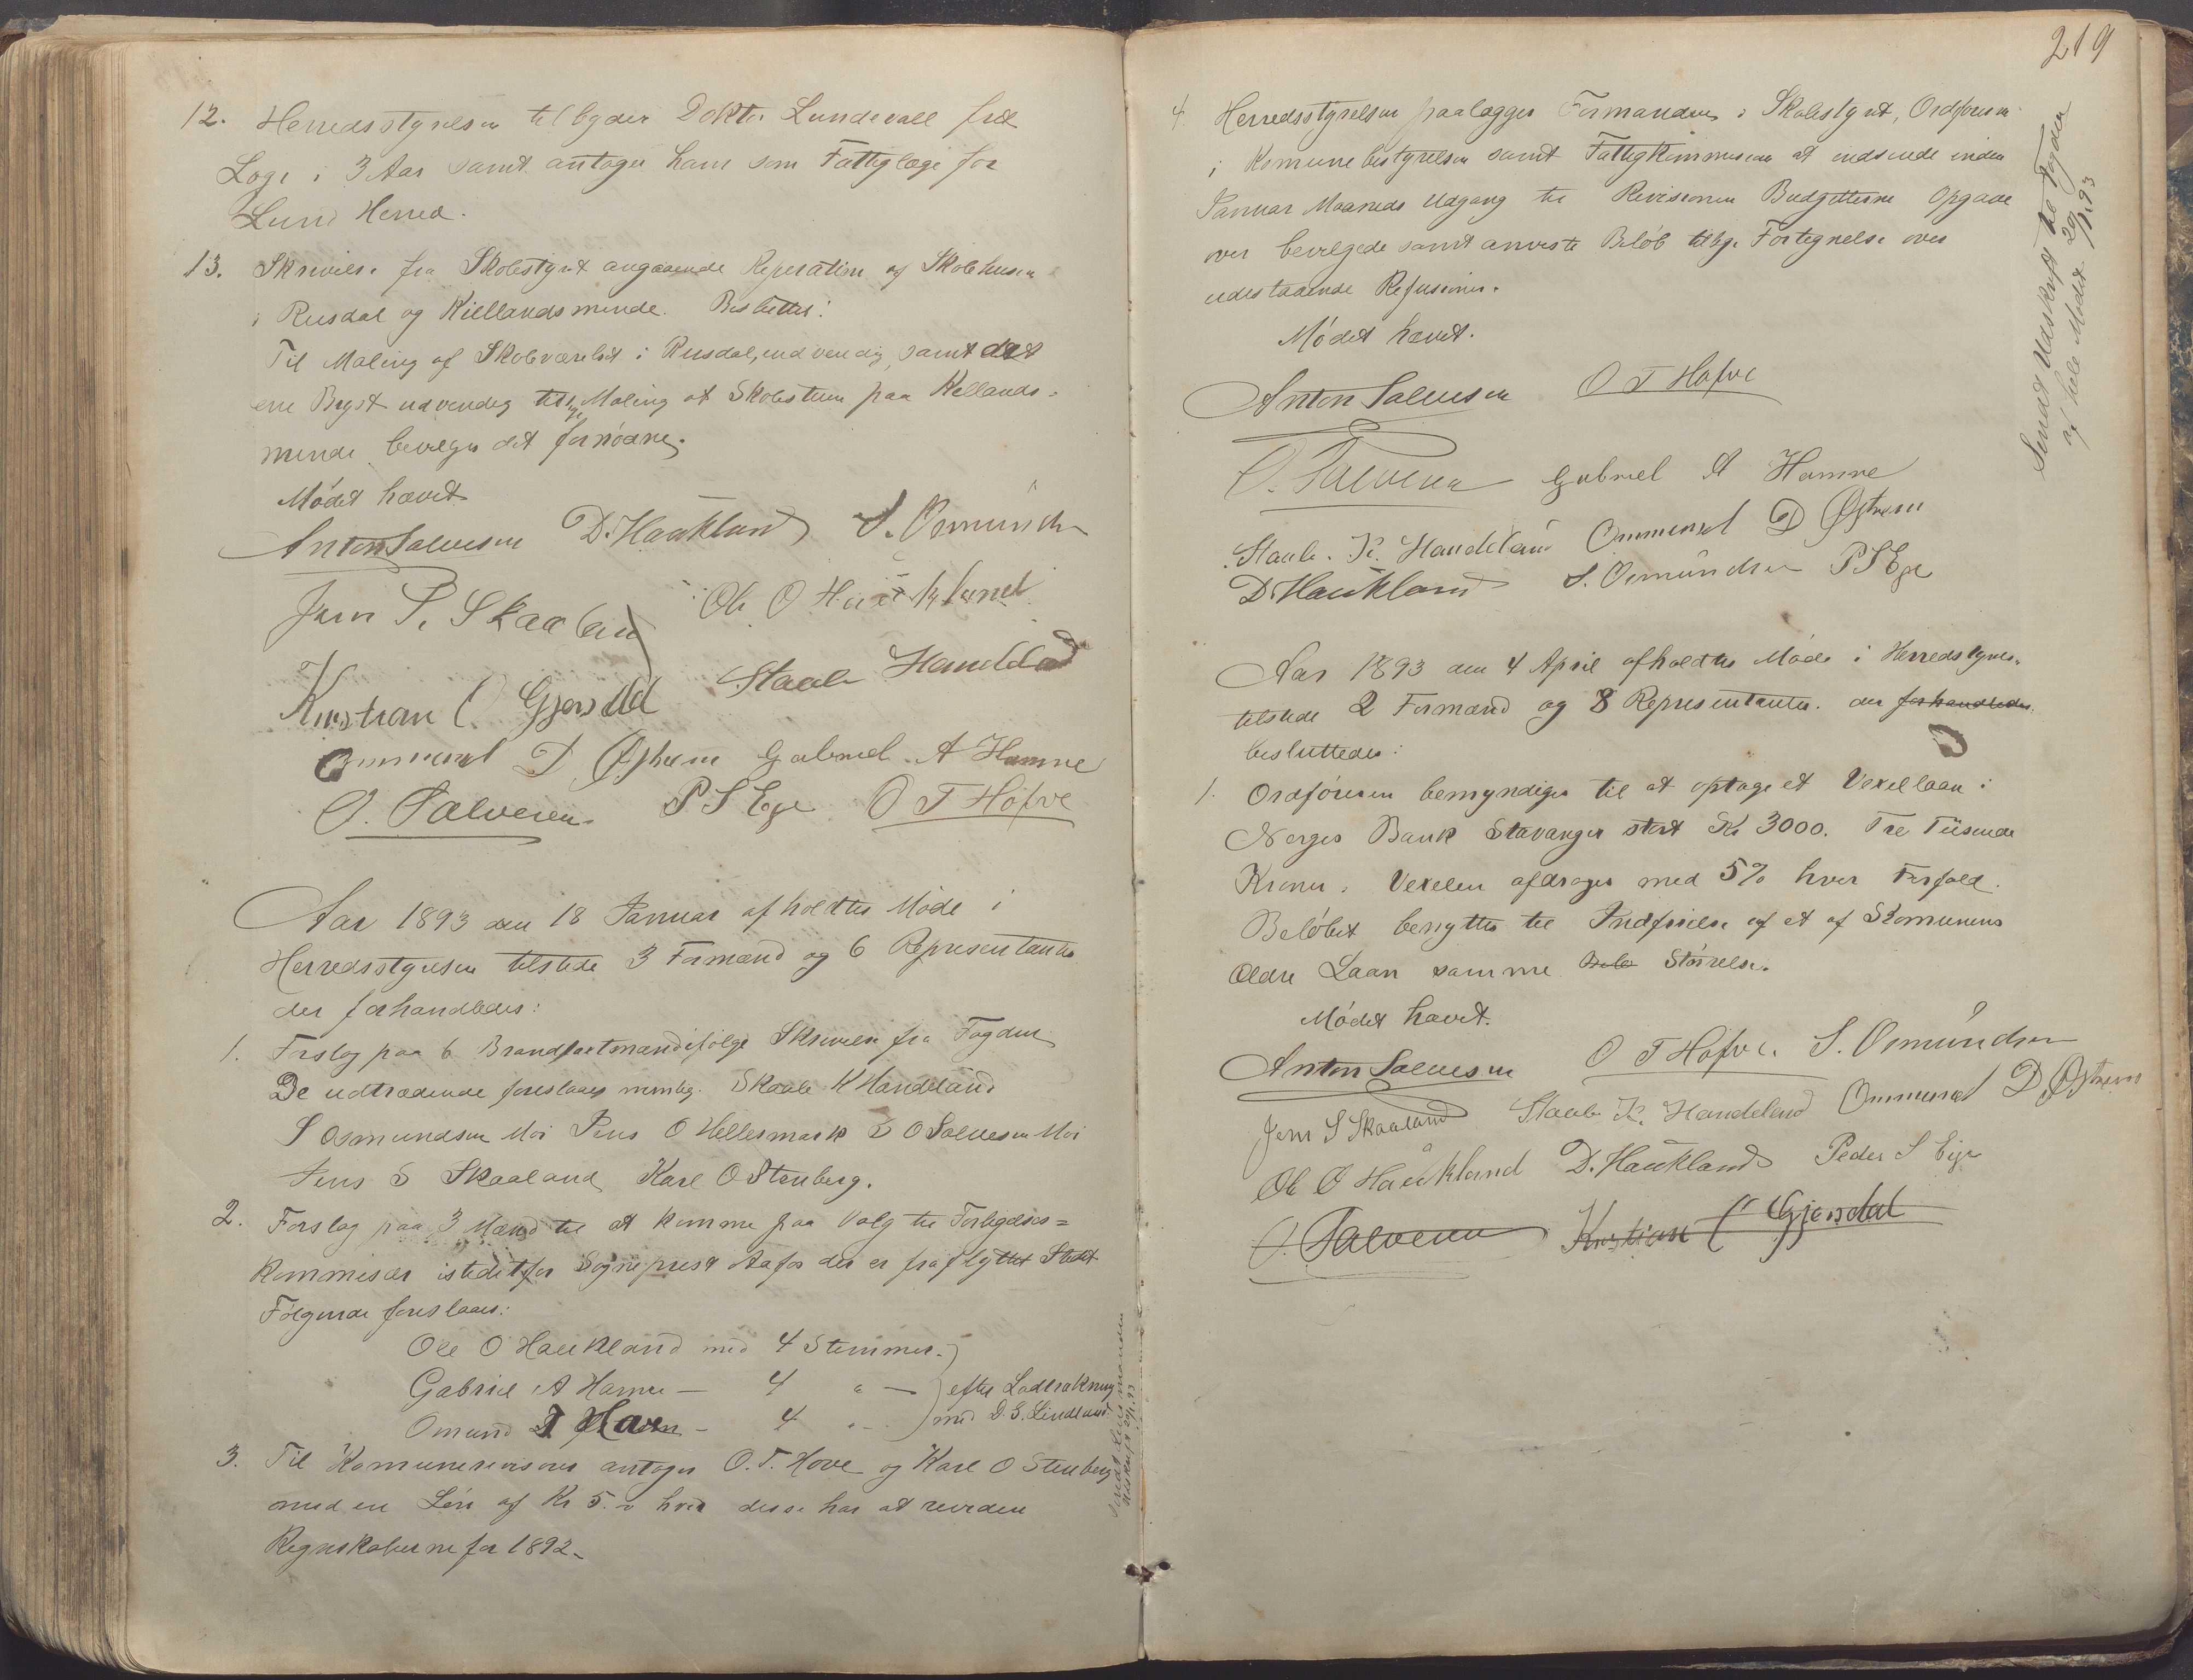 12. Herredsstyrelsen tilbyder Doktor Lundevall frit
Loge i 3 Aar samt antager ham som Fattiglæge for
Lund Herred.
13. Skrivelse fra Skolestyret angaaende Reperation af Skolehusene
i Rusdal og Kiellandsminde. Besluttet:
Til Maling af Skoleværelset i Rusdal, indvendig, samt det
ene Bryst udvendig tillige Maling at Skolestuen paa Kellands-
minde bevilges det fornødne.
Mødet hævet
Anton Salvesen D. Haukland S. Osmundsen
Jens S. Skaaland Ole O Haukland
Kristian C Gjersdal Staale Handeland
Ommund D Østrem Gabriel A Hamre
O. Salvesen P S Ege O T Hofve
Aar 1893 den 18 Januar afholdtes Møde i
Herredsstyrelsen tilstede 3 Formænd og 6 Representanter
der forhandledes:
1. Forslag paa 6 Brandtaxtmænd ifølge Skrivelse fra Fogden
De udtrædende foreslaaes nemlig. Staale K Handeland
S Osmundsen Moi Jens O Hellesmark S O Salvesen Moi
Jens S Skaaland Karl O Stenberg.
2. Forslag paa 3 Mænd til at komme paa Valg til Forligelses=
kommisær istedetfor Sogneprest Aafos der er fraflyttet Stedet
Følgende foreslaaes:
Ole O Haukland med 4 Stemmer.
Gabriel A Hamre — 4 " — efter Lodtrækning
Omund — 4 " — med D. G. Lindland.
3. Til Komunerevisorer antages O. T. Hove og Karl O Stenberg
mod en Løn af Kr 5.- hver disse har at revidere
Regnskaberne for 1892.
Sendt Lensmanden
Udskrift 20/1.93
219
4. Herredsstyrelsen paalægger Formanden i Skolestyret, Ordføreren
i Komunebestyrelsen samt Fattigkommisionen at indsende inden
Januar Maaneds Udgang til Revisionen Budgetterne Opgave
over bevilgede samt anviste Beløb tillige Fortegnelse over
udestaaende Refusioner.
Mødet hævet.
Sendt Udskrift til Fogden
af hele Mødet 20/1.93
Anton Salvesen O T Hofve
O. Salvesen Gabriel A Hamre
Staale. K. Handeland Ommund D Østrem
D. Haukland S. Osmundsen P S Ege
Aar 1893 den 4 April afholdtes Møde i Herredsstyrel.
tilstede 2 Formænd og 8 Representanter. der forhandledes
besluttedes:
1. Ordføreren bemyndiges til at optage et Vexellaan i
Norges Bank Stavanger stort Kr 3000. Tre Tusende
Kroner. Vexelen afdrages med 5% hver Forfald.
Beløbet benyttes til Indfrielse af et af Komunens
ældre Laan samme Belø Størrelse.
Mødet hævet.
Anton Salvesen O T Hofve. S. Osmundsen
Jens S Skaaland Staale K. Handeland Ommund D Østrem
Ole O Haukland D. Haukland Peder S Eige
O. Salvesen Kristian C Gjersdal